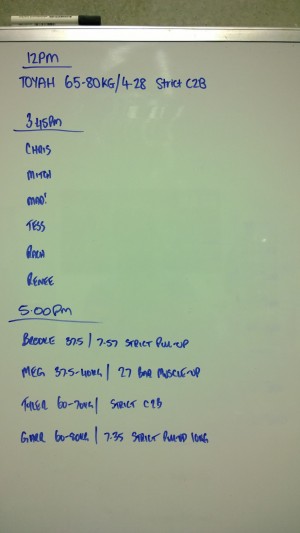 12PM
TOYAH 65-80KG/4.28 Strict C2B
3.45PM
CHRIS
MITCH
MADI
TESS
RACH
RENEE
5.00PM
BROOKE 37.5 | 7.57 STRICT PULL-UP
MEG 37.5-40KG | 27 BAR MUSCLE-UP
TYLER 60-70KG | STRICT C2B
60-80KG | 7.35 STRICT PULL-UP 10KG